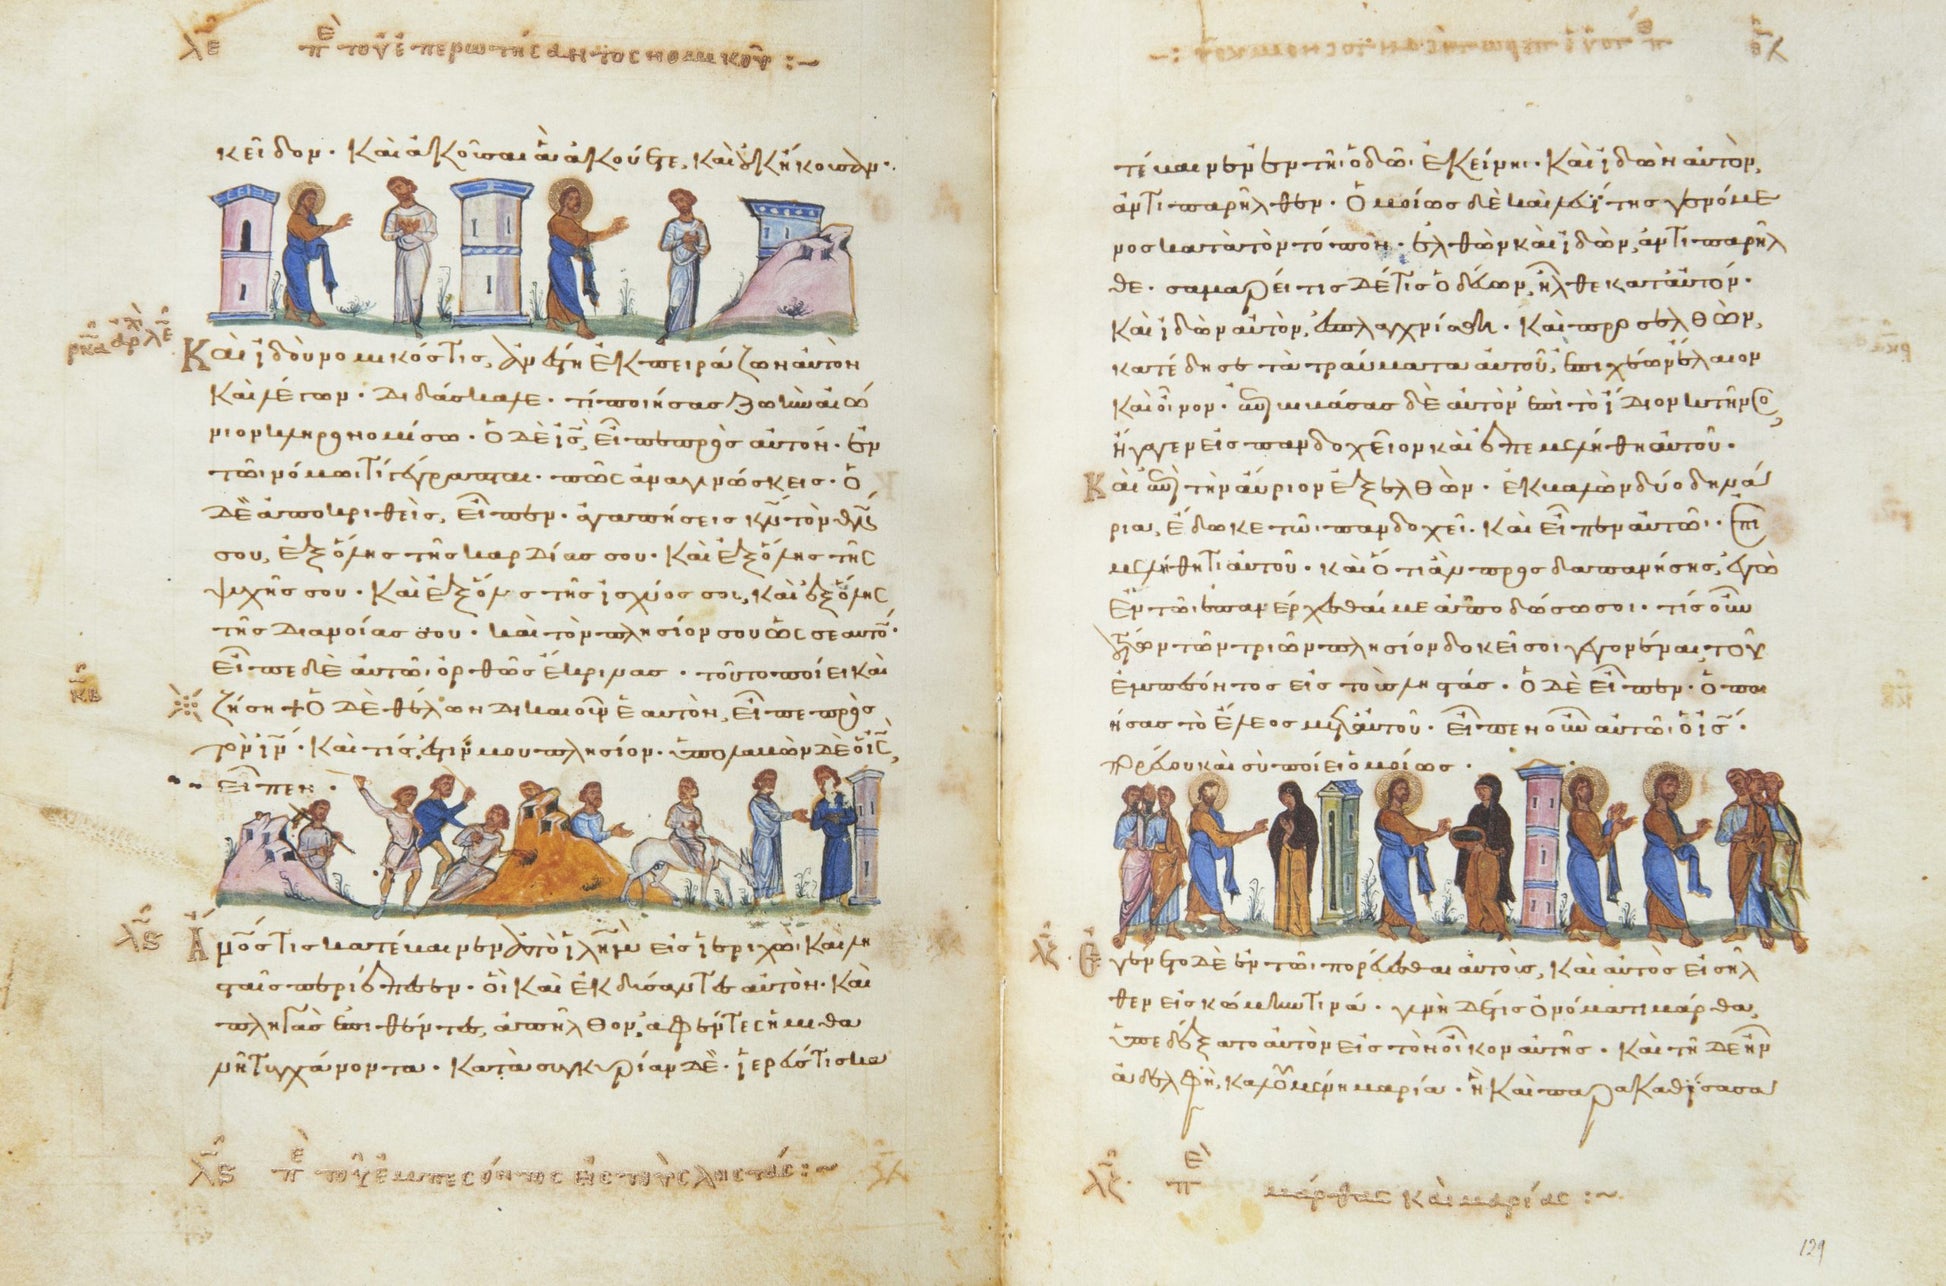 λε πε τοῦ ἐπερωτήσαντος νομικοῦ :~
κεῖδον· Καὶ ἀκοῦσαι ἃ ἀκούετε, καὶ οὐκ ἤκουσαν·
Καὶ ἰδοὺ νομικός τις, ἀνέστη ἐκπειράζων αὐτὸν
Καὶ λέγων· Διδάσκαλε· τί ποιήσας ζωὴν αἰώ
νιον κληρονομήσω· Ὁ δὲ ις, εἶπε πρὸς αὐτόν· ἐν
τῶι νόμωι τί γέγραπται· πῶς ἀναγινώσκεις· Ὁ
δὲ ἀποκριθεὶς, εἶπεν· ἀγαπήσεις κν τὸν θν
σου, ἐξ ὅλης τῆς καρδίας σου· Καὶ ἐξ ὅλης τῆς
ψυχῆς σου· Καὶ ἐξ ὅλης τῆς ἰσχύος σου, καὶ ἐξ ὅλης
τῆς διανοίας σου· καὶ τὸν πλησίον σου ὡς σεαυτό·
εἶπε δὲ αὐτῶι, ὀρθῶς ἔκρινας· τοῦτο ποίει καὶ
κβ
ζήση + Ὁ δὲ θέλων δικαιοῦν ἑαυτὸν, εἶπε πρὸς
τὸν ιν· Καὶ τίς ἐστίν μου πλησίον· ὑπολαβὼν δὲ ὁ ις,
εἶπεν·
λς Ἀνος τις κατέβαινεν ἀπὸ ιλημ εἰς ἰεριχὼ· Καὶ λη
σταῖς περιέπεσεν· οἳ καὶ ἐκδύσαντες αὐτὸν· Καὶ
πληγὰς ἐπιθέντες, ἀπῆλθον, ἀφέντες ἡμιθα
νῆ τυγχάνοντα· Κατὰ συγκυρίαν δὲ· ἱερεύς τις κα
λς πε τοῦ ἐμπεσόντος εἰς τοὺς ληστάς :~
τέβαινεν ἐν τῆι ὁδῶι ἐκείνηι· Καὶ ἰδὼν αὐτὸν,
ἀντιπαρῆλθεν· Ὁμοίως δὲ καὶ λευίτης γενόμε
νος κατὰ τὸν τόπον· ἐλθὼν καὶ ἰδὼν, ἀντιπαρῆλ
θε· σαμαρείτις δέ τις ὁδεύων, ἦλθε κατ αὐτόν·
Καὶ ἰδὼν αὐτὸν, ἐσπλαγχνίσθη· Καὶ προσελθὼν,
κατέδησε τὰ τραύματα αὐτοῦ, ἐπιχέων ἔλαιον
Καὶ οἶνον· ἐπιβιβάσας δὲ αὐτὸν ἐπὶ τὸ ἴδιον κτῆνος,
ἤγαγεν εἰς πανδοχεῖον καὶ ἐπεμελήθη αὐτοῦ·
Καὶ ἐπὶ τὴν αὔριον ἐξελθὼν· ἐκβαλὼν δύο δηνά
ρια, ἔδωκε τῶι πανδοχεῖ· Καὶ εἶπεν αὐτῶι· ἐπι
μελήθητι αὐτοῦ· καὶ ὅτι ἂν προσδαπανήσης, ἐγὼ
ἐν τῶι ἐπανέρχεσθαί με ἀποδώσω σοι· τίς οὖν
τούτων τῶν τριῶν πλησίον δοκεῖ σοι γεγονέναι τοῦ
ἐμπεσόντος εἰς τοὺς ληστάς· Ὁ δὲ εἶπεν· Ὁ ποι
ήσας τὸ ἔλεος μετ αὐτοῦ· εἶπεν οὖν αὐτῶι ὁ ις·
πορεύου καὶ σὺ ποίει ὁμοίως·
λζ Ἐγένετο δὲ ἐν τῶι πορεύεσθαι αὐτοὺς, Καὶ αὐτὸς εἰσῆλ
θεν εἰς κώμην τινά· γυνὴ δέ τις ὀνόματι μάρθα,
ὑπεδέξατο αὐτὸν εἰς τὸν οἶκον αὐτῆς· Καὶ τῆ δε ἦν
ἀδελφὴ, καλουμένη μαρία· ἣ καὶ παρακαθίσασα
λζ πε μάρθας καὶ μαρίας :~
129